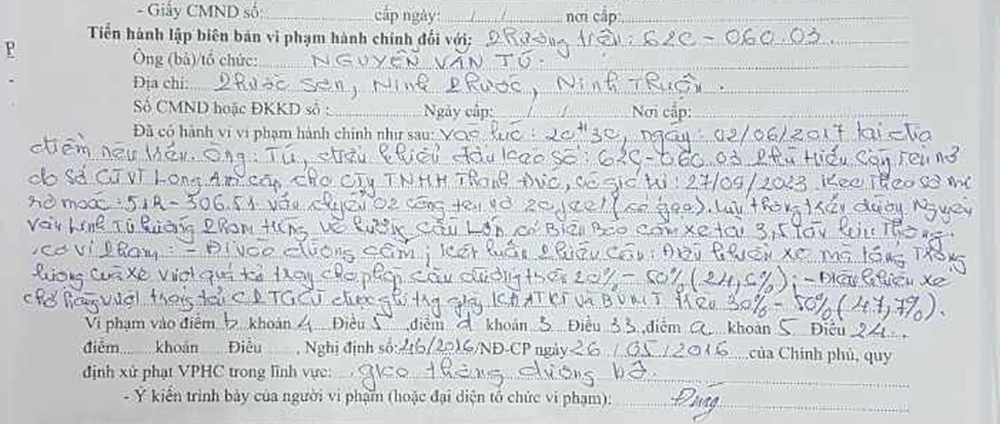 - Giấy CMND số: cấp ngày: / / nơi cấp:
Tiến hành lập biên bản vi phạm hành chính đối với: Phương tiện: 62C - 060.03
P Ông (bà)/tổ chức: NGUYỄN VĂN TÚ.
Địa chỉ: Phước Sơn, Ninh Phước, Ninh Thuận.
Số CMND hoặc ĐKKD số: Ngày cấp: / / Nơi cấp:
Đã có hành vi vi phạm hành chính như sau: Vào lúc: 20h30, ngày: 02/06/2017 tại địa
điểm nêu trên. Ông: Tú, điều khiển đầu kéo số: 62C-060.03 Phù hiệu
do Sở GTVT Long An cấp cho CTy TNHH Thanh Đức, có giá trị: 27/09/2023. Kéo theo sơ mi
rơ mooc: 51R-306.51 vận chuyển 02 công ten nơ 20 feet (số gạo). Lưu thông trên đường Nguyễn
Văn Linh Từ hướng Phạm Hùng về hướng Cầu Lớn có Biển Báo cấm xe tải 3,5 Tấn lưu Thông.
có vi Phạm: - Đi vào đường cấm; Kết luận Phiếu Cân: Điều khiển xe mà tổng Trọng
lượng của xe vượt quá tải trọng cho phép cầu đường trên 20% - 50% (24,6%); - Điều khiển xe
chở hàng vượt trọng tải CPTGGT được ghi trg giấy KĐATKT và BVMT trên 30% - 50% (47,7%).
Vi phạm vào điểm b khoản 4 Điều 5, điểm d khoản 3 Điều 33, điểm a khoản 5 Điều 24
điểm khoản Điều , Nghị định số: 46/2016/NĐ-CP ngày 26/05/2016 của Chính phủ, quy
định xử phạt VPHC trong lĩnh vực: giao thông đường bộ.
- Ý kiến trình bày của người vi phạm (hoặc đại diện tổ chức vi phạm): Đúng